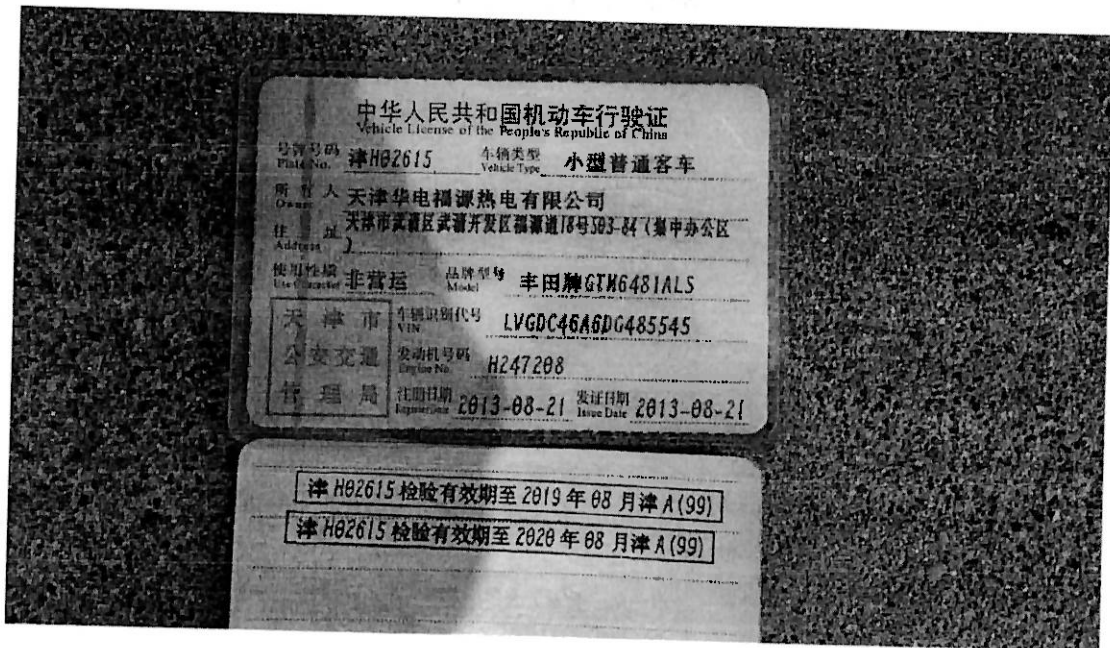 中华人民共和国机动车行驶证
Vehicle License of the People's Republic of China
号牌号码 Plate No. 津H02615 车辆类型 Vehicle Type 小型普通客车
所有人 Owner 天津华电福源热电有限公司
住址 Address 天津市武清区武清开发区福源道18号503-84(集中办公区
)
使用性质 Use Character 非营运 品牌型号 Model 丰田牌GTM6481ALS
天津市 车辆识别代号 VIN LVGDC46A6DG485545
公安交通 发动机号码 Engine No. H247208
管理局 注册日期 Register Date 2013-08-21 发证日期 Issue Date 2013-08-21
津H02615检验有效期至2019年08月津A(99)
津H02615检验有效期至2020年08月津A(99)